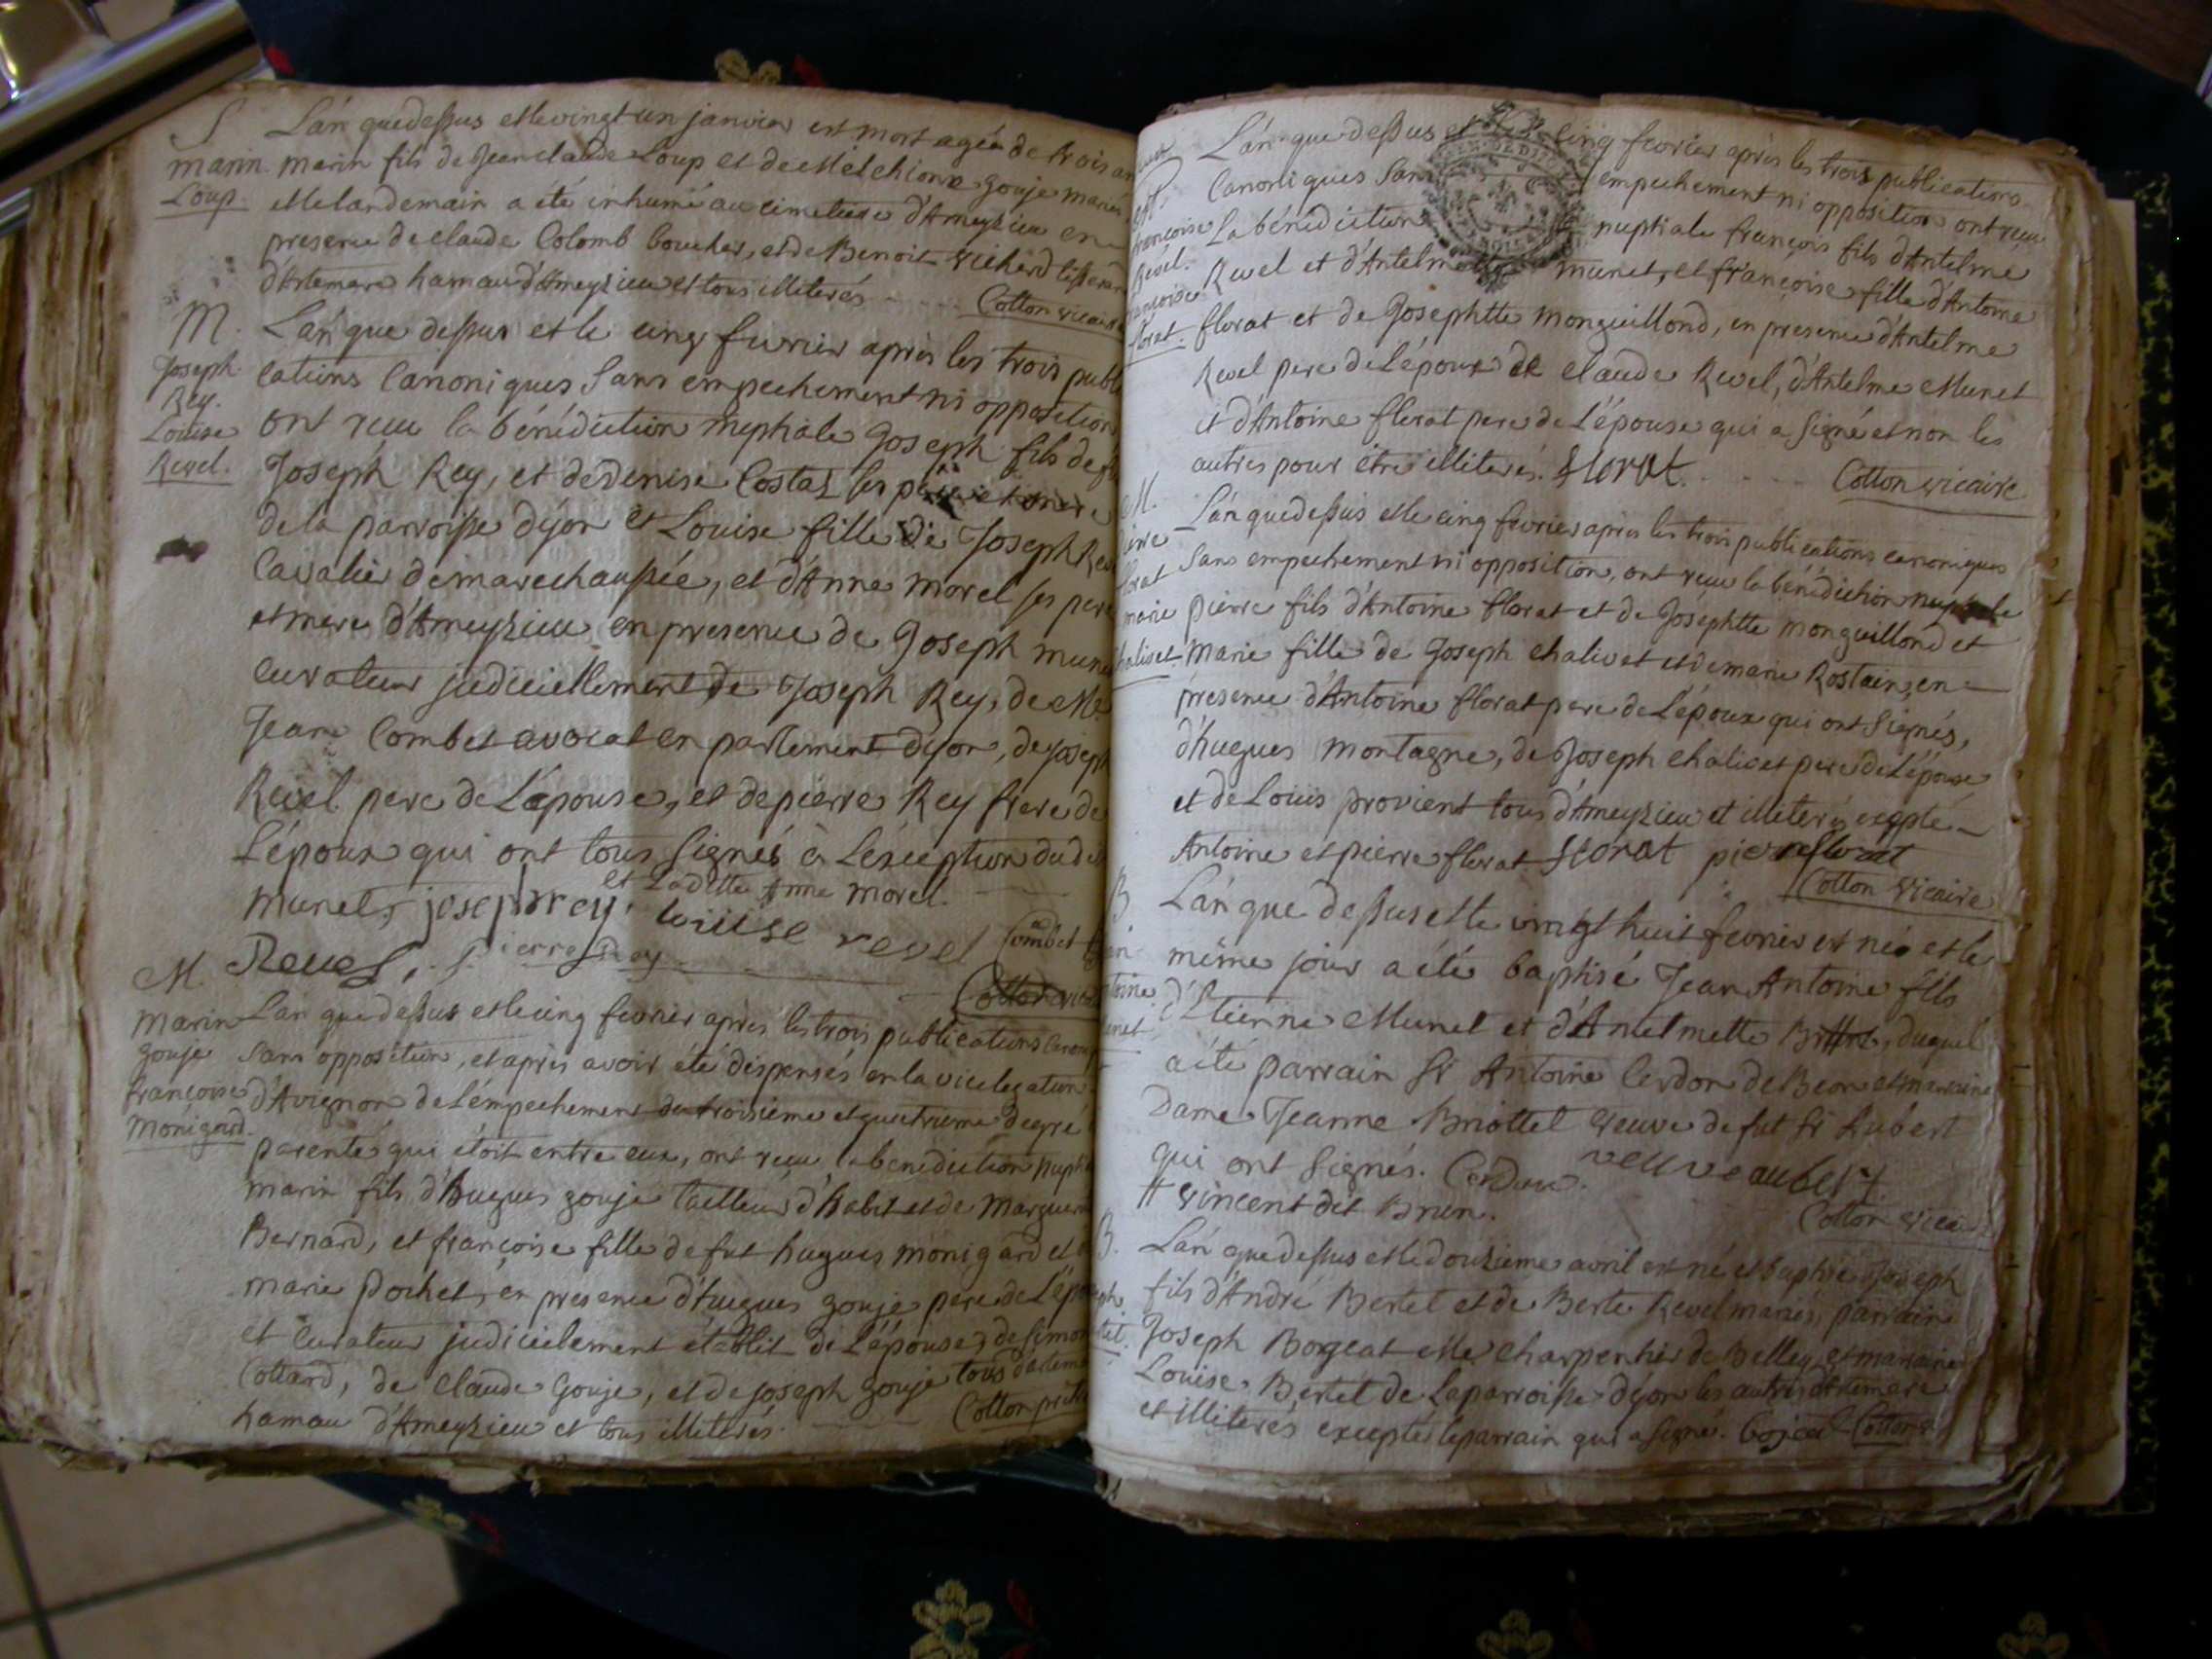 S
marin
Loup.
L'an que dessus et le vingt un janvier est mort agée de trois an
marin fils de Jean claude Loup et de Melchionne gouje mariés
et le landemain a été inhumé au cimetiere d'Ameyzieu en
presence de claude Colomb boucher, et de Benoit
d'Artemare hamau d'Ameyzieu et tous illiterés
Cotton vicaire
M.
Joseph
Rey.
Louise
Revel.
L'an que dessus et le cinq fevrier après les trois publi
cations Canoniques Sans empechement ni opposition
ont reçu la bénédiction nuptiale Joseph fils de
Joseph Rey, et de denise Costaz ses
de la parroisse dyon et Louise fille de Joseph Rev
Cavalier de marechaussée, et d'Anne morel ses pere
et mere d'Ameyzieu en presence de Joseph munet
curateur judiciellement de Joseph Rey, de Me
Jean Combet avocat en parlement dyon, de joseph
Revel pere de L'épouse, et de pierre Rey frere de
L'époux qui ont tous Signés à L'exception dud
et Ladite Anne morel.
munet, joseph rey louise revel Combet
Revel, pierre Rey
Cotton vica
M.
marin
gouje
françoise
monigard.
L'an que dessus et le cinq fevrier après les trois publications Canoni
Sans opposition, et après avoir été dispensés en la vicelegation
d'Avignon de L'empechement du troisieme et quatrieme degré
parenté qui étoit entre eux, ont reçu la benediction nupti
marin fils d'hugues gouje tailleur d'habit et de marguer
Bernard, et françoise fille de fut hugues monigard et
marie pochet, en presence d'hugues gouje pere de L'épo
et curateur judicielement établit de L'épouse, de Simon
Cottard, de claude Gouje, et de joseph gouje tous d'artem
hamau d'Ameyzieu et tous illiterés.
Cotton
françoise
Revel.
florat.
L'an que dessus et cinq fevrier après les trois publications
Canoniques Sans empechement ni opposition ont reçu
La bénédiction nuptiale françois fils d'Antelme
Revel et d'Antelmette munet, et françoise fille d'Antoine
florat et de Josephtte monguillond, en presence d'Antelme
Revel pere de L'époux de claude Revel, d'Antelme Munet
et d'Antoine florat pere de L'épouse qui a Signé et non les
autres pour être illiterés. florat.
Cotton vicaire
M.
florat
marie
halivet
L'an que dessus et le cinq fevrier après les trois publications canoniques
Sans empechement ni opposition, ont reçu la bénédiction nuptiale
pierre fils d'Antoine florat et de Joséphtte monguillond et
Marie fille de Joseph chalivet et de marie Rostain, en
presence d'Antoine florat pere de L'époux qui ont Signés,
d'hugues montagne, de Joseph chalivet pere de L'épouse
et de Louis provient tous d'Ameyzieu et illiterés excepté
Antoine et pierre florat florat pierre florat
Cotton vicaire
B
toine
unet
L'an que dessus et le vingt huit fevrier est né et le
même jour a été baptisé Jean Antoine fils
d'Etienne Munet et d'Antelmette duquel
a été parrain Sr Antoine Cerdon de Beon et marraine
Dame Jeanne Briottet veuve de fut Sr Aubert
qui ont Signés. Cerdon. veuve aubert
# vincent dit Brun.
Cotton vicai
B.
L'an que dessus et le douzieme avril est né et baptisé Joseph
fils d'André Bertet et de Berte Revel mariés, parrain
Joseph Borgeat Me charpentier de Belley et marraine
Louise Bertet de la parroisse dyon les autres d'artemare
et illiterés exceptés le parrain qui a Signé. Cotton